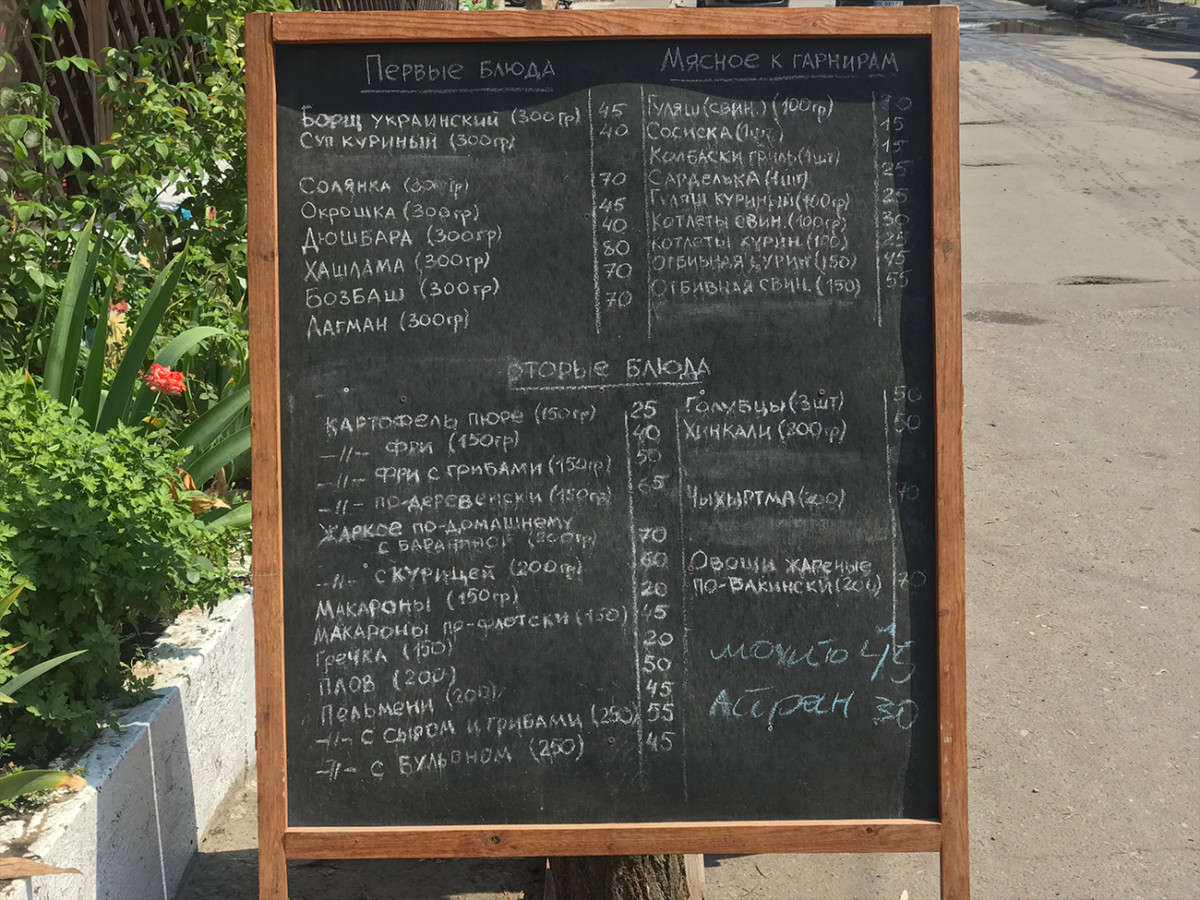 Первые блюда
Борщ украинский (300гр) 45
Суп куриный (300гр) 40
Солянка (300гр) 70
Окрошка (300гр) 45
Дюшбара (300гр) 40
Хашлама (300гр) 80
Бозбаш (300гр) 70
Лагман (300гр) 70
Мясное к гарнирам
Гуляш (свин.) (100гр)
Сосиска (1шт) 15
Колбаски гриль (1шт) 15
Сарделька (1шт) 25
Гуляш куриный (100гр) 25
Котлеты свин. (100гр) 30
Котлеты курин. (100) 25
Отбивная курин (150) 45
Отбивная свин. (150) 55
вторые блюда
Картофель пюре (150гр) 25
–//– фри (150гр) 40
–//– фри с грибами (150гр) 50
–//– по-деревенски (150гр) 65
Жаркое по-домашнему
с бараниной (200гр) 70
–//– с курицей (200гр) 60
Макароны (150гр) 20
Макароны по-флотски (150) 45
Гречка (150) 20
Плов (200) 50
Пельмени (200) 45
–//– с сыром и грибами (250) 55
–//– с бульоном (250) 45
Голубцы (3шт) 50
Хинкали (200гр) 50
Чыхыртма (200) 70
Овощи жареные
по-бакински (200) 70
мохито 45
Айран 30